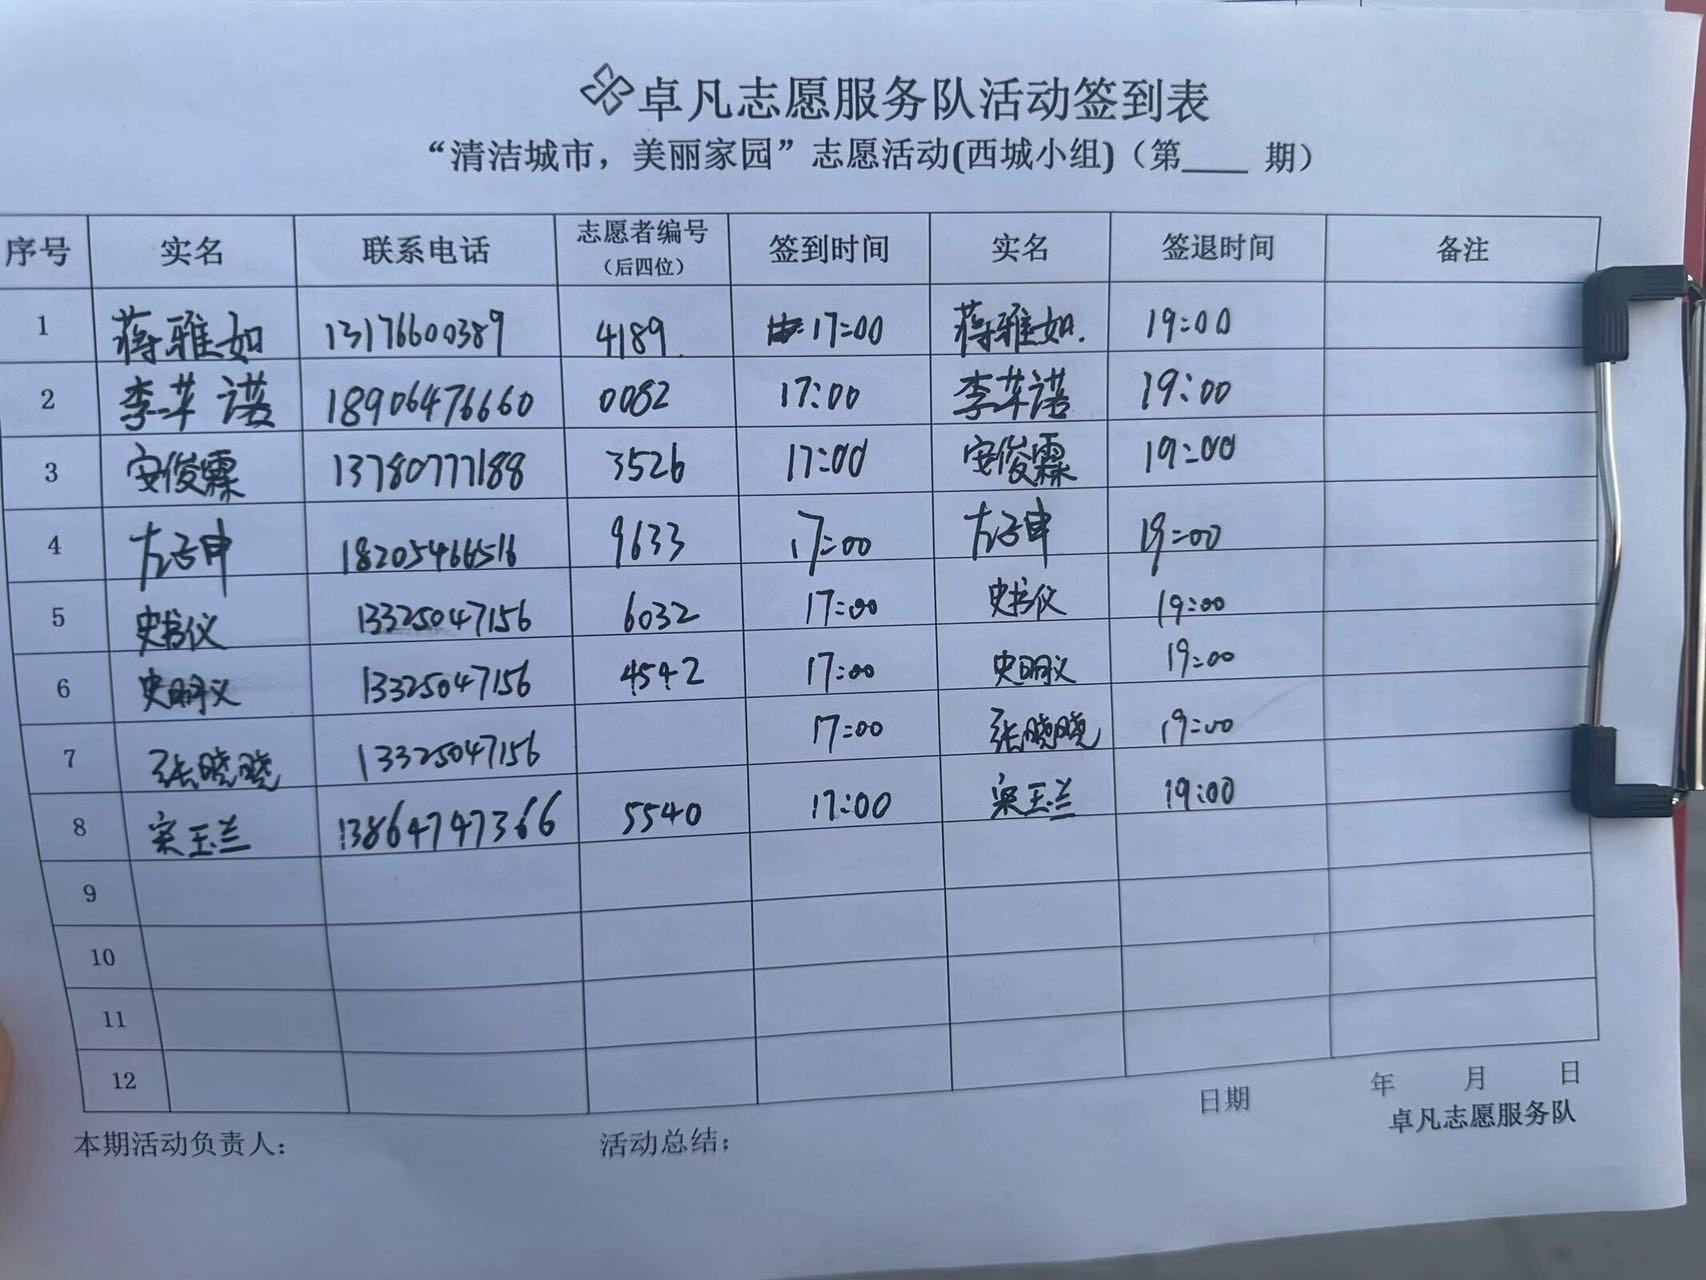 卓凡志愿服务队活动签到表
“清洁城市，美丽家园”志愿活动(西城小组)（第____ 期）
序号 实名 联系电话 志愿者编号（后四位） 签到时间 实名 签退时间 备注
1 蒋雅如 13176600389 4189 17:00 蒋雅如. 19:00
2 李苹诺 18906476660 0082 17:00 李苹诺 19:00
3 安俊霖 13780777188 3526 17:00 安俊霖 19:00
4 左子申 18205466516 9633 17:00 左子申 19:00
5 史书仪 13325047156 6032 17:00 史书仪 19:00
6 史明仪 13325047156 4542 17:00 史明仪 19:00
7 张晓晓 13325047156 17:00 张晓晓 19:00
8 宋玉兰 13864747366 5540 17:00 宋玉兰 19:00
9
10
11
12
日期 年 月 日
卓凡志愿服务队
本期活动负责人： 活动总结：